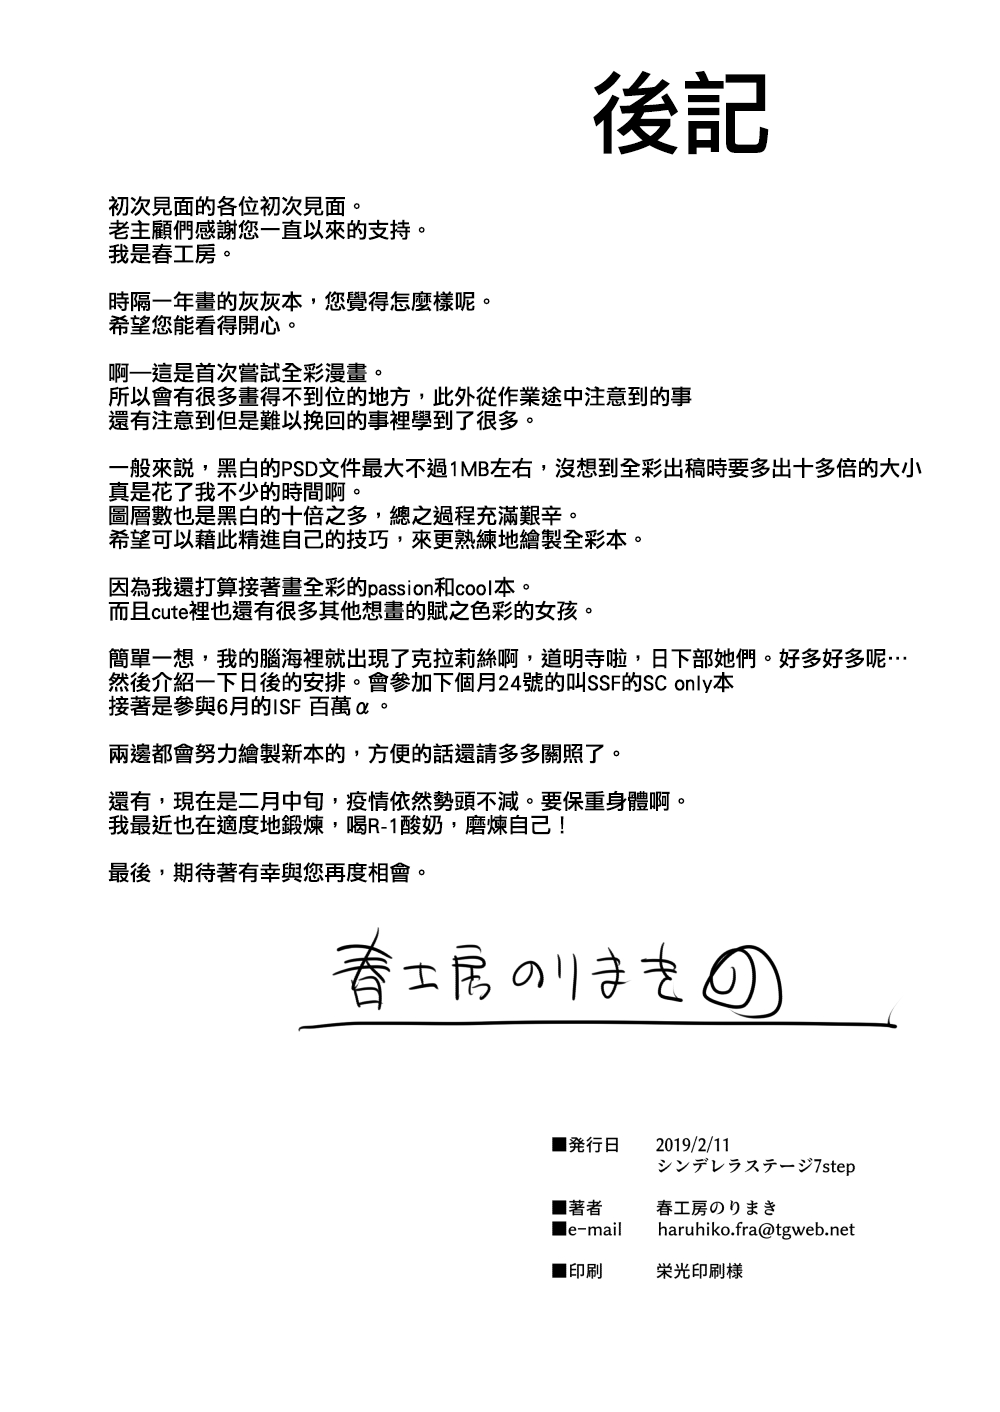 後記
初次見面的各位初次見面。
老主顧們感謝您一直以來的支持。
我是春工房。
時隔一年畫的灰灰本，您覺得怎麼樣呢。
希望您能看得開心。
啊—這是首次嘗試全彩漫畫。
所以會有很多畫得不到位的地方，此外從作業途中注意到的事
還有注意到但是難以挽回的事裡學到了很多。
一般來説，黑白的PSD文件最大不過1MB左右，沒想到全彩出稿時要多出十多倍的大小
真是花了我不少的時間啊。
圖層數也是黑白的十倍之多，總之過程充滿艱辛。
希望可以藉此精進自己的技巧，來更熟練地繪製全彩本。
因為我還打算接著畫全彩的passion和cool本。
而且cute裡也還有很多其他想畫的賦之色彩的女孩。
簡單一想，我的腦海裡就出現了克拉莉絲啊，道明寺啦，日下部她們。好多好多呢…
然後介紹一下日後的安排。會參加下個月24號的叫SSF的SC only本
接著是參與6月的ISF 百萬α。
兩邊都會努力繪製新本的，方便的話還請多多關照了。
還有，現在是二月中旬，疫情依然勢頭不減。要保重身體啊。
我最近也在適度地鍛煉，喝R-1酸奶，磨煉自己！
最後，期待著有幸與您再度相會。
春工房のりまき の
■発行日 2019/2/11
シンデレラステージ7step
■著者 春工房のりまき
■e-mail haruhiko.fra@tgweb.net
■印刷 栄光印刷様